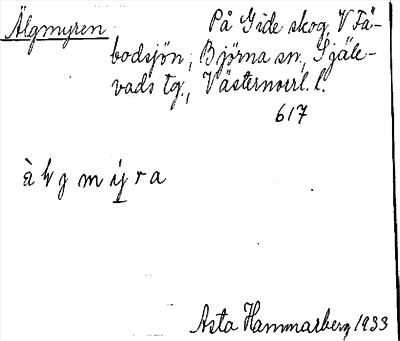 Älgmyren På Gide skog, V Fä-
bodsjön; Björna sn, Själe-
vads tg., Västernorrl. l.
617
Asta Hammarberg 1933